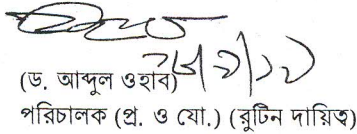 (ড. আব্দুল ওহাব)
পরিচালক (প্র. ও যো.) (রুটিন দায়িত্ব)